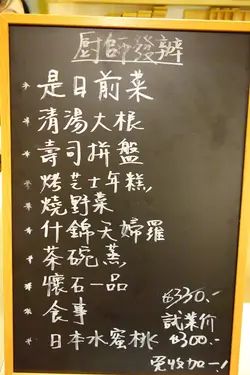 厨師發辦
* 是日前菜
* 清湯大根
* 壽司拼盤
* 烤芝士年糕
* 燒野菜
* 什錦天婦羅
* 茶碗蒸
* 懷石一品
* 食事 $350.-
試業价
* 日本水蜜桃 $300.-
免收加一!